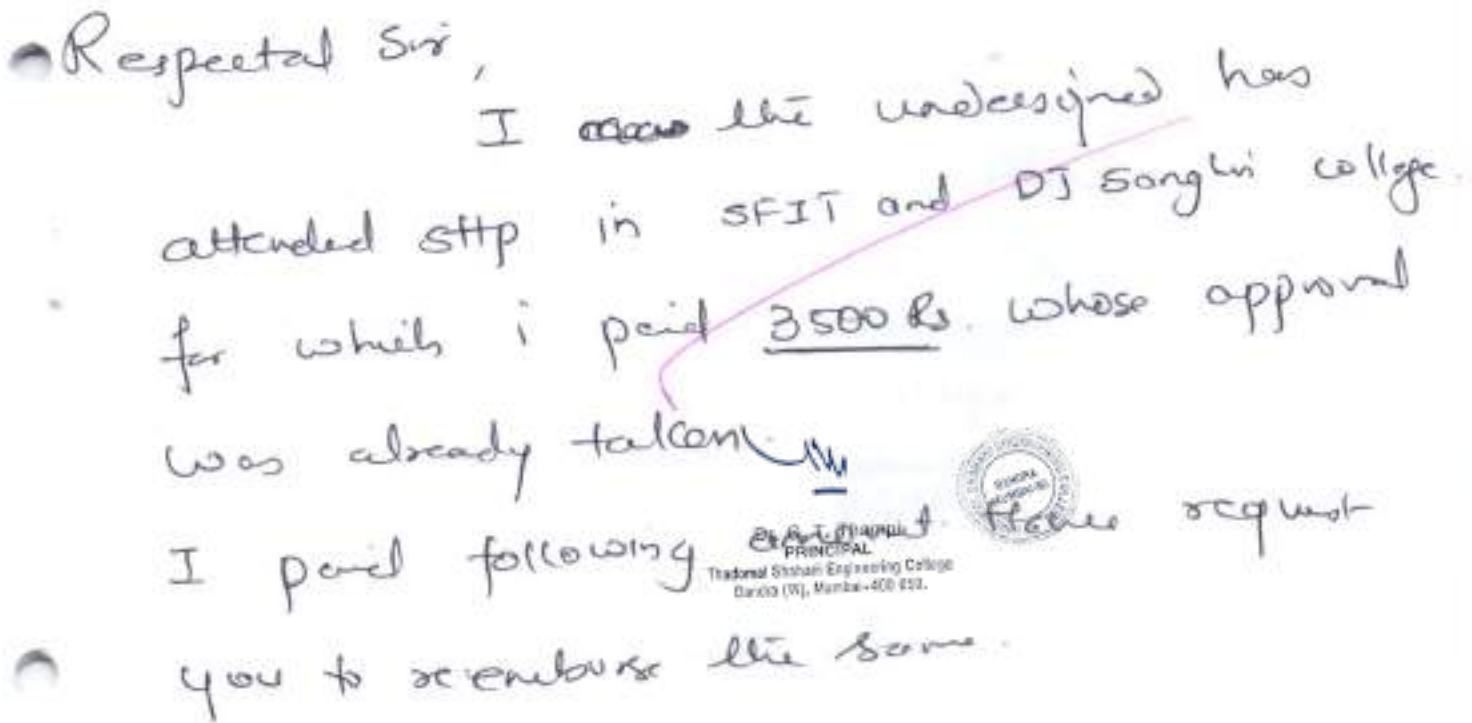 Respectal Sir,
I the undersigned has
attended sttp in SFIT and DJ Sanghvi college.
for which i paid 3500 Rs. whose approval
was already taken.
I paid following amount Hence request
PRINCIPAL
Thadomal Shahani Engineering College
Bandra (W), Mumbai-400 050.
you to reemburse the same.